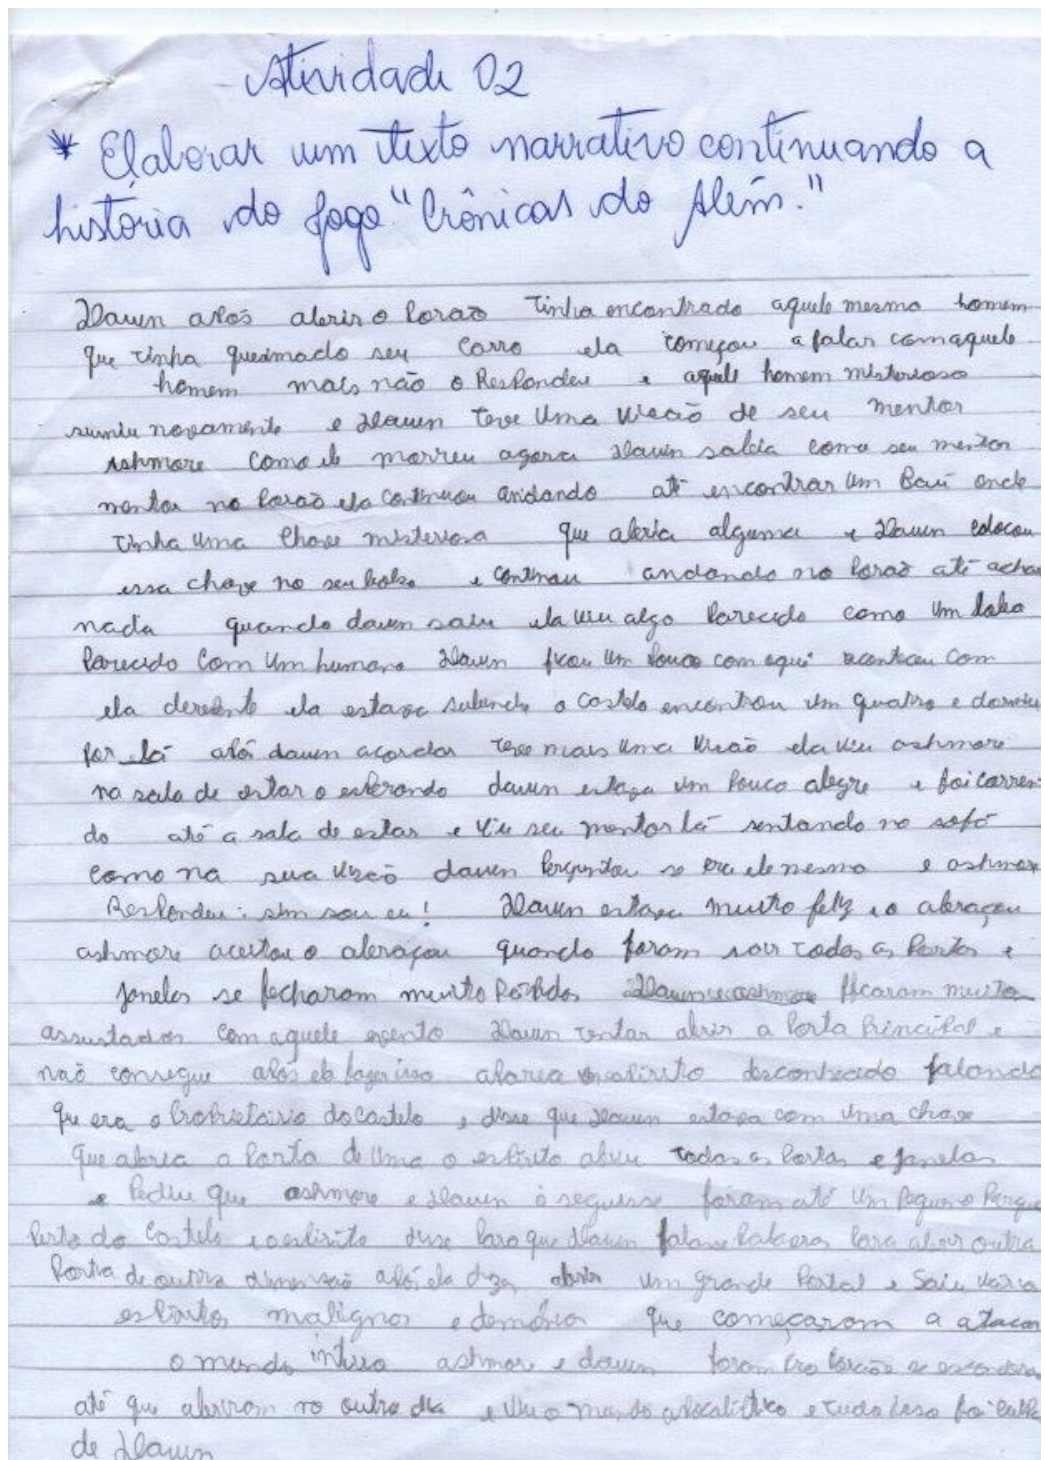 Atividade 02
* Elaborar um texto narrativo continuando a
história do jogo "Crônicas do Além."
Dawen após abrir o Porão Tinha encontrado aquele mesmo homem
que tinha queimado seu carro ela começou a falar com aquele
homem mais não o Respondeu e aquele homem misterioso
sumiu novamente e Dawen Teve Uma Visão de seu mentor
Ashmore como ele morreu agora Dawen sabia como seu mentor
no Porão ela continuou andando até encontrar um Baú onde
Tinha Uma Chave misteriosa que abria alguma e Dawen colocou
essa chave no seu bolso e andando no Porão até
nada quando dawen saiu ela viu algo Parecido como Um
Parecido Com Um humano Dawen Um Pouco com com
ela ela estava o castelo encontrou um quatro e dormiu
Por lá dawen acordar Teve mais Uma Visão ela viu ashmore
na sala de estar o esperando dawen estava um Pouco alegre e foi corren-
do até a sala de estar e Viu seu mentor lá sentando no sofá
como na sua Visão dawen Perguntou se era ele mesmo e ashmore
Respondeu: sim sou eu! Dawen estava muito feliz e o abraçou
ashmore aceitou o abraçou quando foram sair Todas as Portas e
Janelas se fecharam muito ficaram muito
assustados com aquele evento Dawen Tentar abrir a Porta Principal e
não consegue após ela fazer isso desconhecido falando
que era o Proprietário do castelo e disse que Dawen estava com Uma chave
que abria a Porta de Uma o espírito abriu Todas as Portas e Janelas
e Pediu que ashmore e Dawen o seguisse foram até Um Pequeno Parque
Perto do Castelo e o espírito disse Para que Dawen Para abrir outra
Porta de outra dimensão ela abrir um grande Portal e Saiu
espíritos malignos e que começaram a atacar
o mundo ashmore e dawen foram
até que abriram no outro dia e o mundo e Tudo isso foi culpa
de Dawen